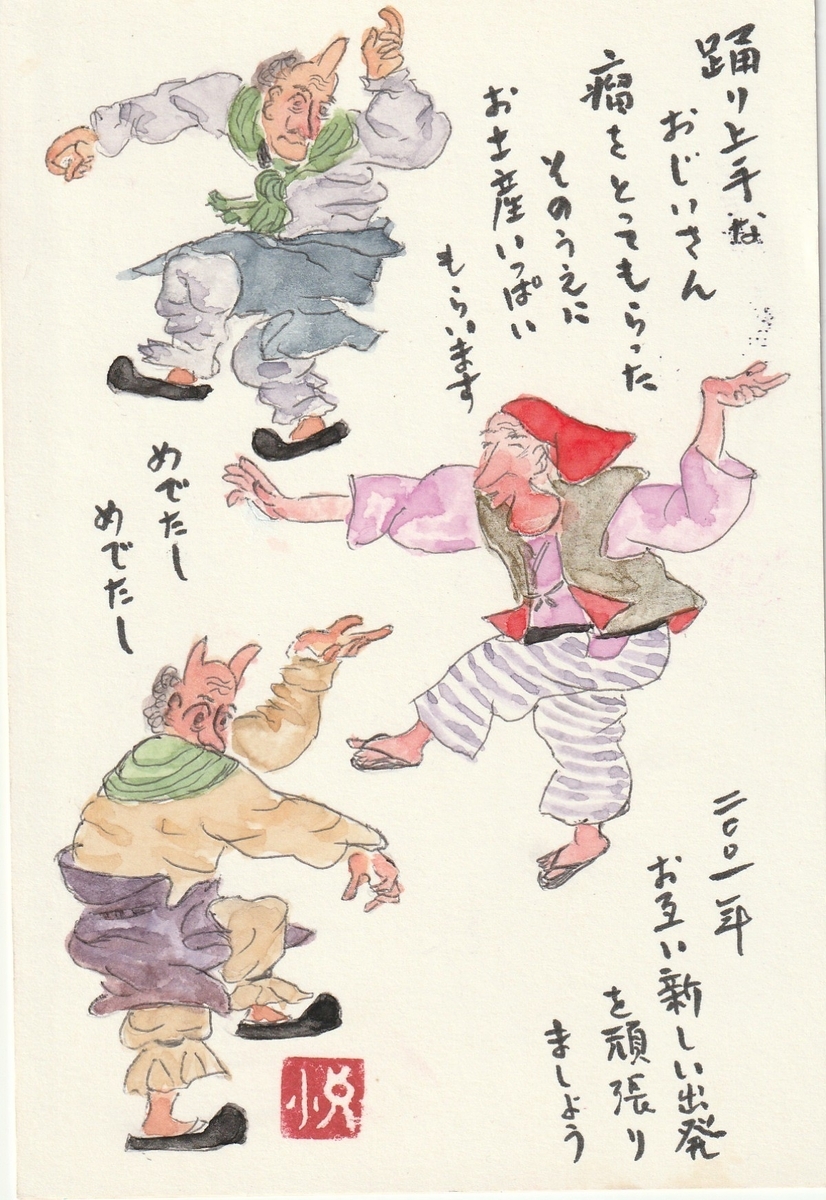 踊り上手な
おじいさん
瘤をとってもらった
そのうえに
お土産いっぱい
もらいます
めでたし
めでたし
二〇〇一年
お互い新しい出発
を頑張り
ましょう
悦